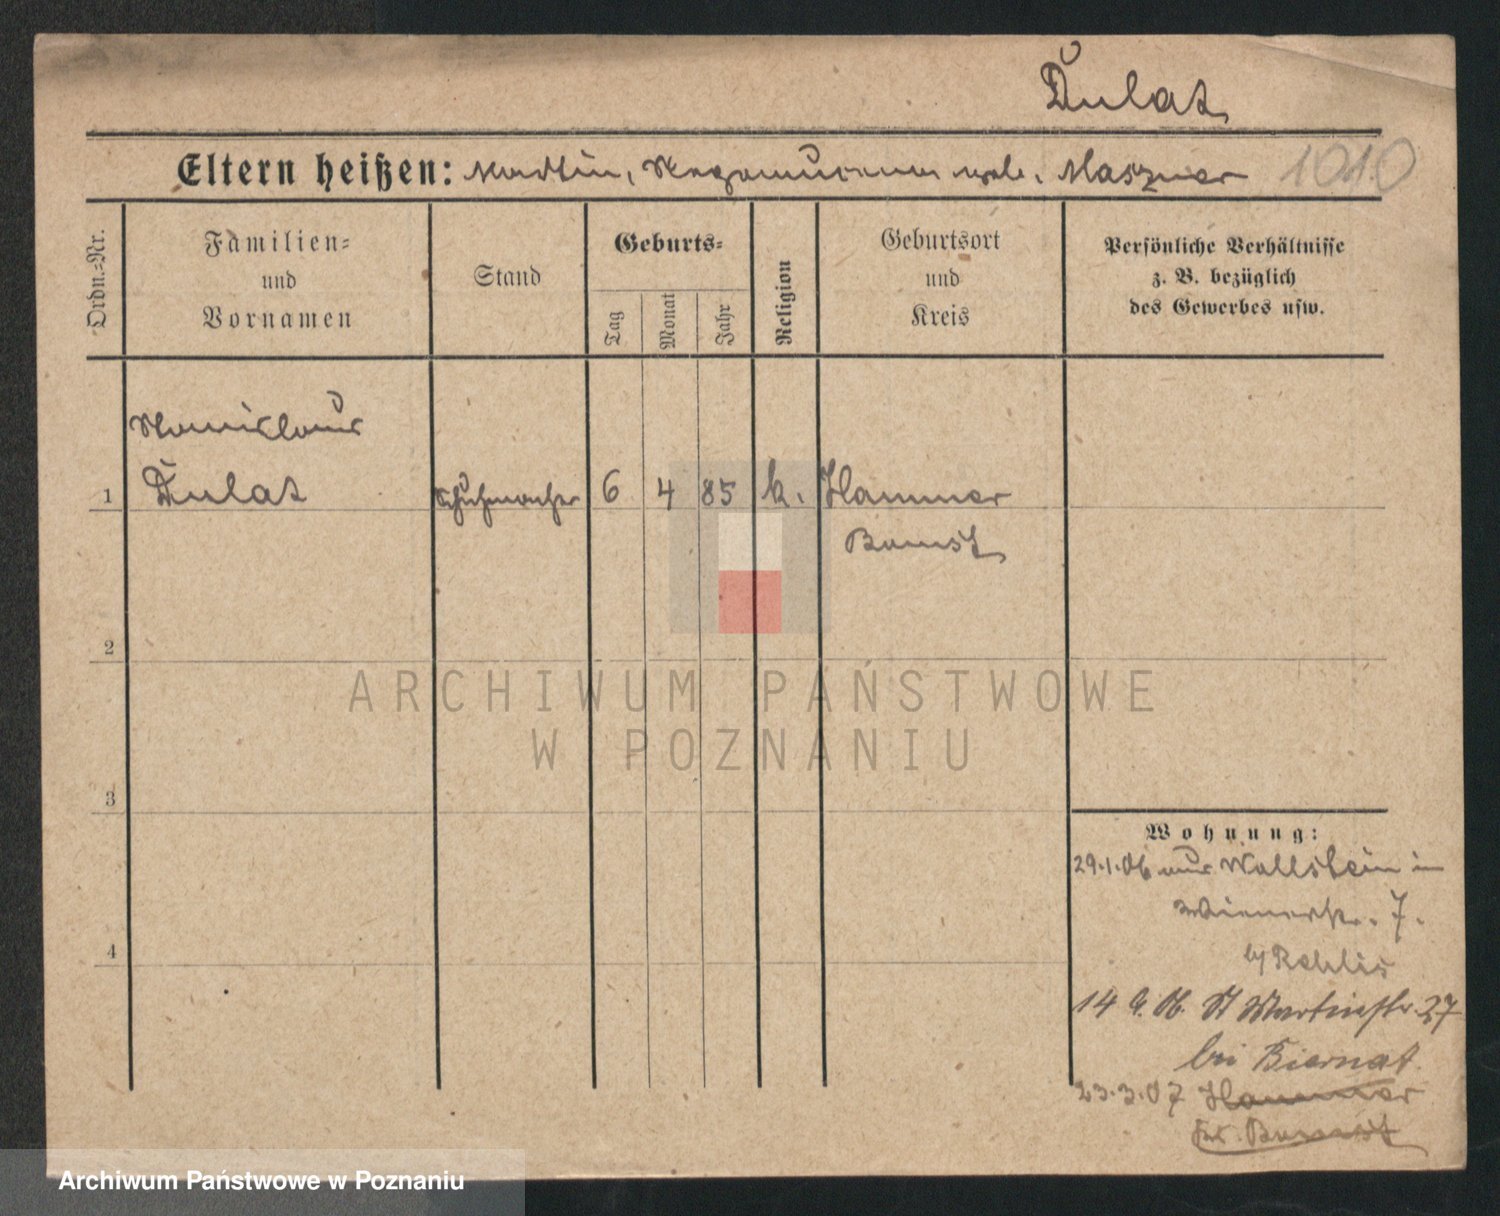 Dulat
Eltern heißen: Martin, geb. Maszner 1010
Ordn.-Nr.
Familien-
und
Vornamen
Stand
Geburts-
Tag
Monat
Jahr
Religion
Geburtsort
und
Kreis
Persönliche Verhältnisse
z. B. bezüglich
des Gewerbes usw.
Stanislaus
1 Dulat Schuhmacher 6 4 85 k. Hammer
Bomst
2
ARCHIWUM PAŃSTWOWE
W POZNANIU
3
Wohnung:
29.1.06 aus Wollstein in
Wienerstr. 7.
4
14 4. 06. St Martinstr. 27
bei Biernat
23.3.07 Hammer
Kr. Bomst
Archiwum Państwowe w Poznaniu